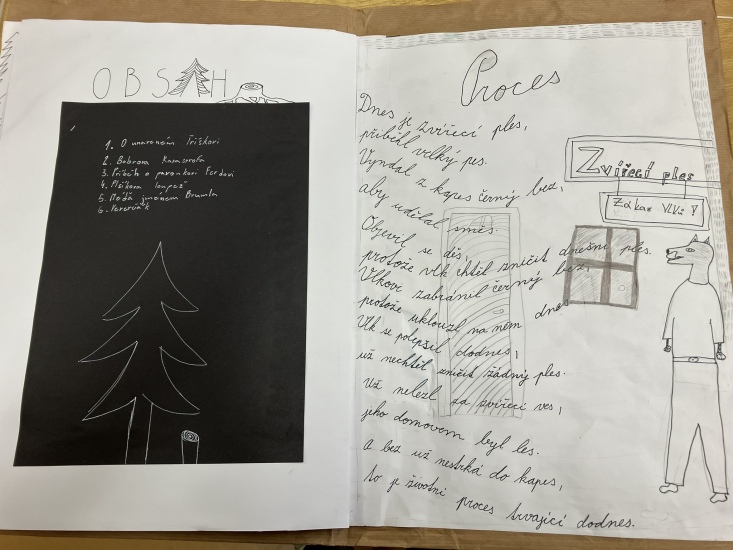 OBSAH
1. O unaveném Tříškovi
2. Bobrova Katastrofa
3. Příběh o pavoukovi Ferdovi
4. Plšíkova loupež
5. Méďa jménem Brumla
6. Veverčák
Proces
Dnes je zvířecí ples,
přiběhl velký pes.
Vyndal z kapes černý bez,
aby udělal směs.
Objevil se děs,
protože vlk chtěl zničit dnešní ples.
Vlkovi zabránil černý bez,
protože uklouzl na něm dnes
Vlk se polepšil dodnes,
už nechtěl zničit žádný ples.
Už nelezl za zvířecí ves,
jeho domovem byl les.
a bez už nestrká do kapes,
to je životní proces trvající dodnes.
Zvířecí ples
Zákaz Vlků !